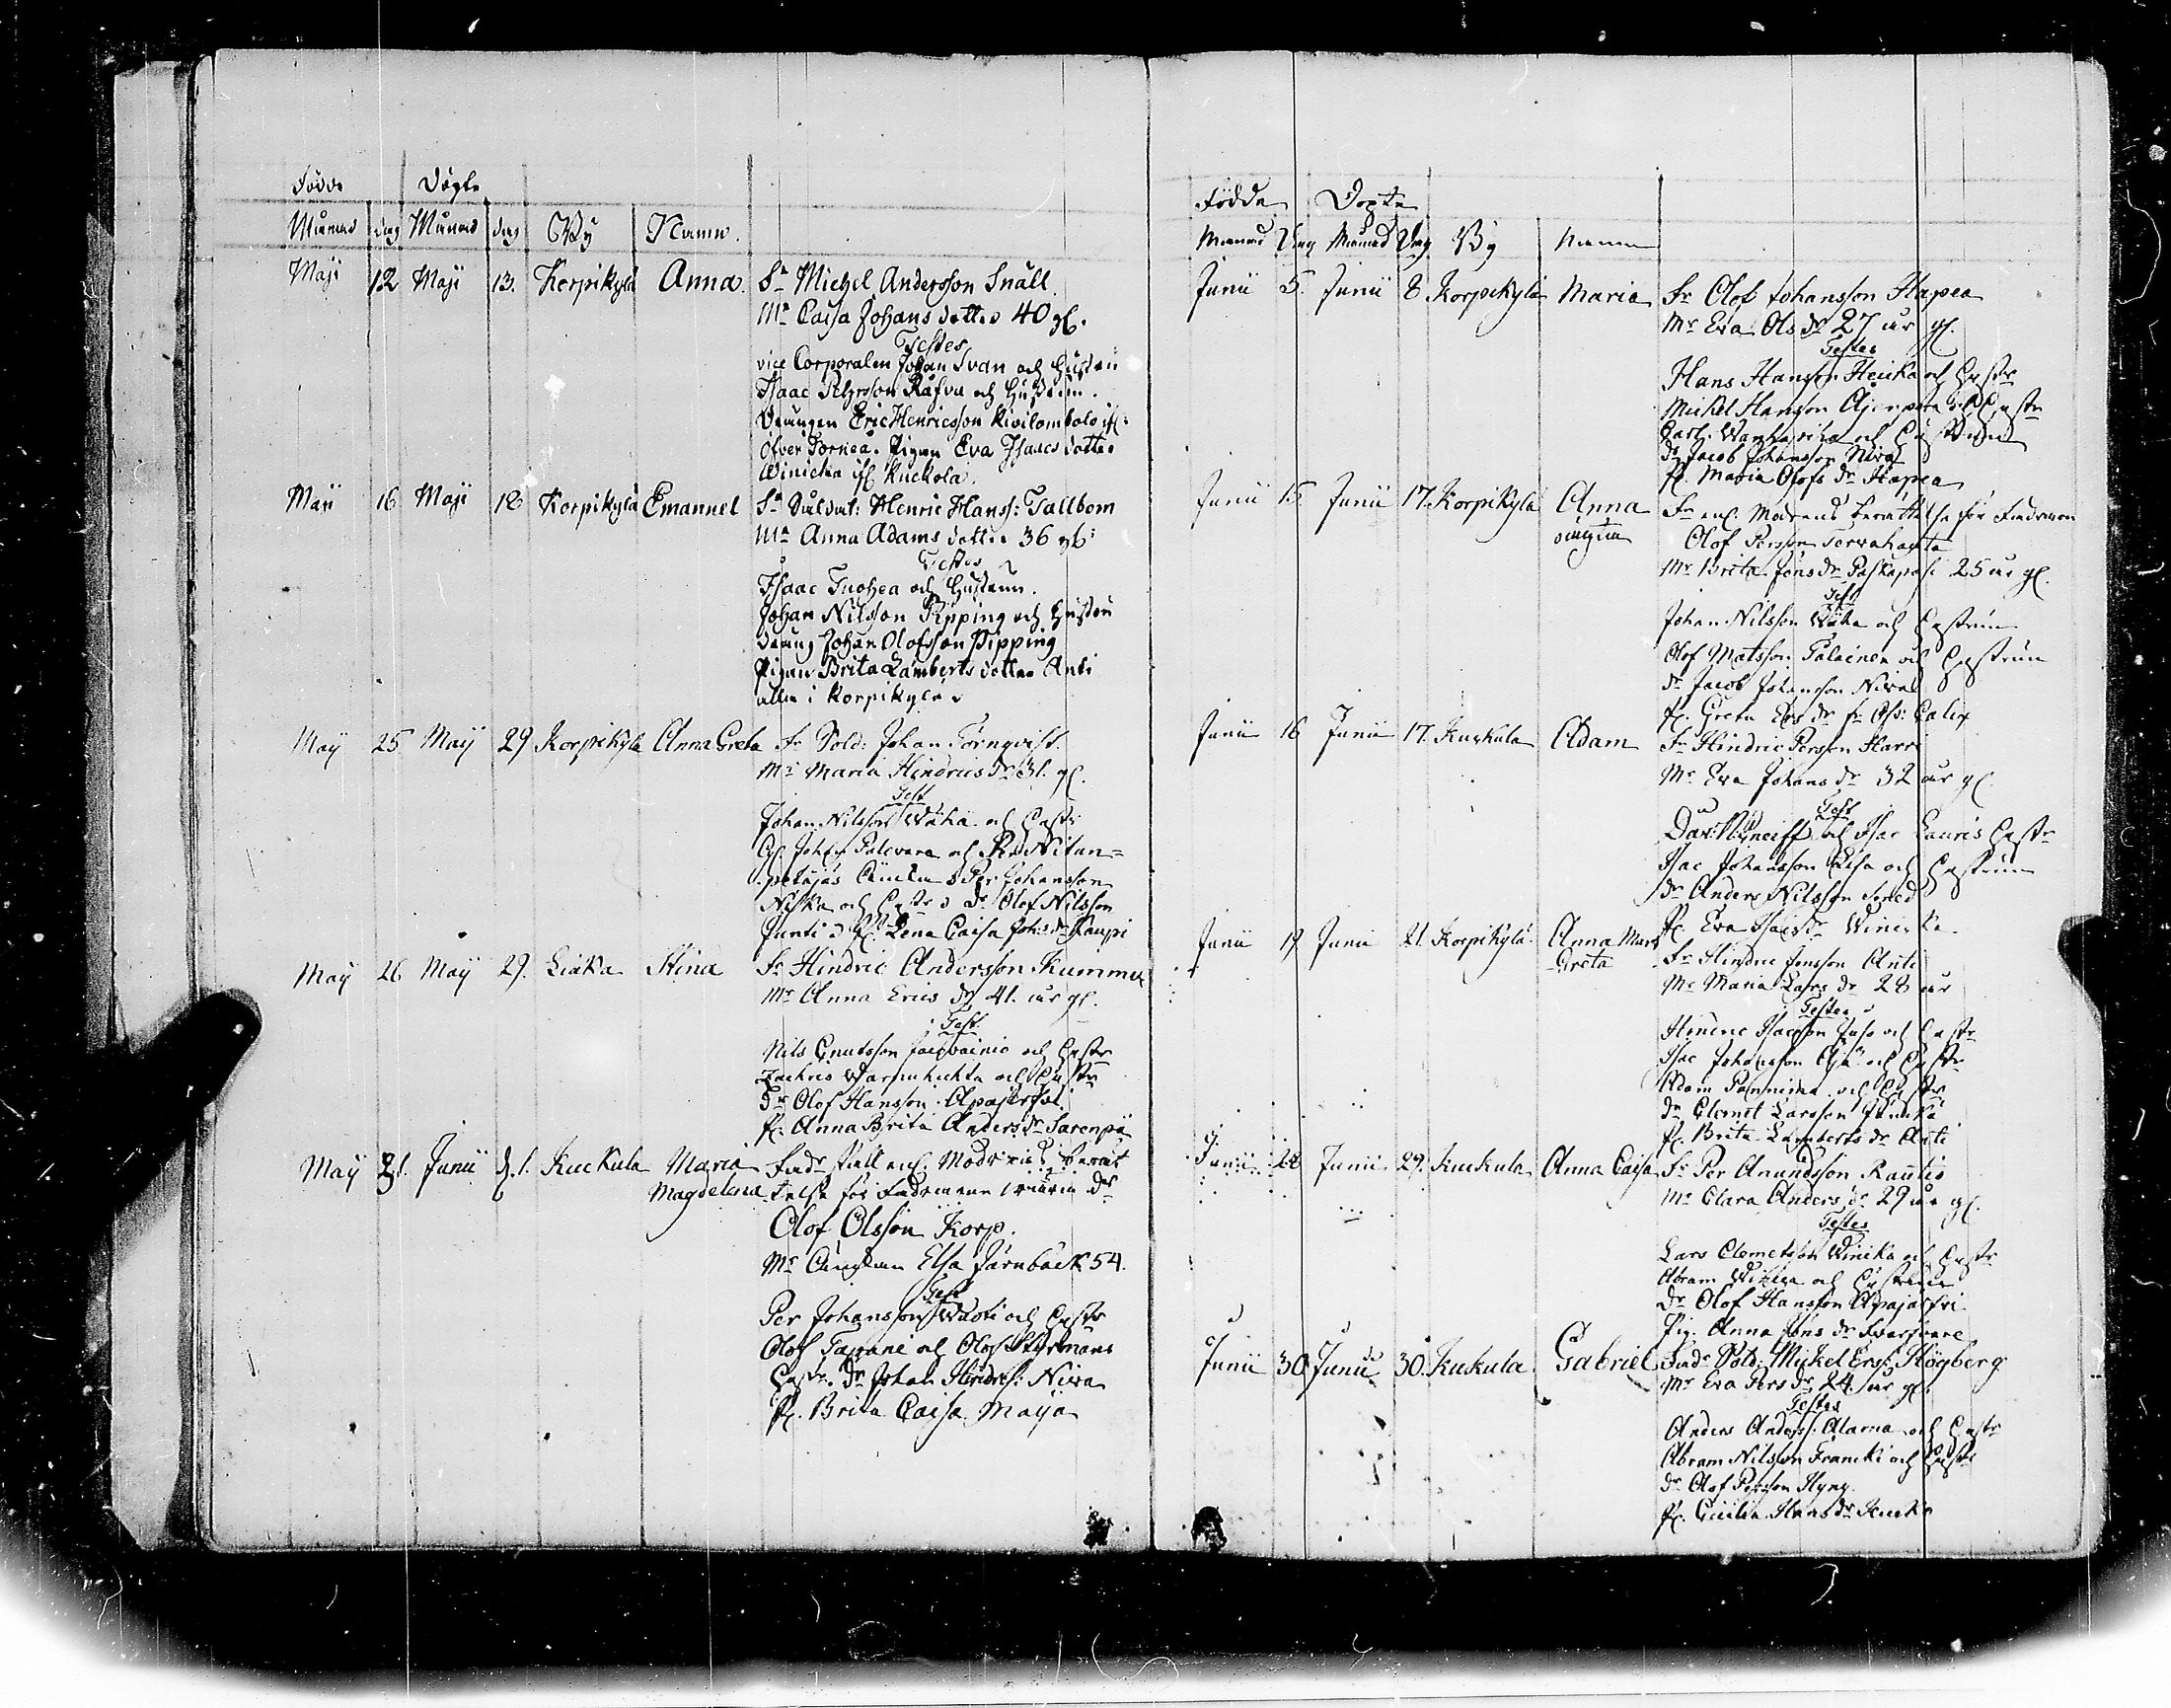 Födde Döpte
Månad dag Månad dag By Namn.
Maji 12 Maji 13. Korpikylä Anna. Fr Michel Andersson Snäll.
Mr Caisa Johans dotter 40 gl.
Testes
vice Corporalen Johan Svan och Hustru
Isaac Pehrsson Räfva och Hustrun.
Drängen Eric Henricsson Kivilombolo if:
Öfver Torneå. Pigan Eva Isaacs dotter
Winicka if Kuckola.
Maji 16 Maji 18 Korpikylä Emanuel Fr Soldat: Henric Hanss: Tallbom
Mr Anna Adams dotter 36 gl:
Testes
Isaac Tuohea och Hustrun.
Johan Nilsson Pipping och Hustru
Dräng Johan Olofsson Pipping
Pigan Brita Lamberts dotter Anti
alla i Korpikylä
May 25 May 29 Korpikyla Anna Greta Fr Sold: Johan Törnqvist.
Mr Maria Hindrics dr 31. gl.
Test
Johan Nilsson Wäha och Hustr
Johan Palovara och Per Nitan=
petäjäs Änkan Per Johansson
Niska och Hustr dr Olof Nilsson
Junti pig. Lena Caisa Johs dr Kaupi
May 26 May 29. Liaka Stina Fr Hindric Andersson Kummu
Mr Anna Erics dr 41. år gl.
Test.
Nils Cnutsson och Hustr
Zachris och Hustr
Dr Olof Hansson Apajärfvi
P. Anna Brita Anders dr Sarenpä
May 31. Junii d. 1. Kuckula Maria Magdelena Modrens berät
telse för Fadren
Olof Olsson Korp.
Mr Änkan Elsa Järnbäck 54.
Test
Per Johansson och Hustr
Olof Tapani och Olof Styrmans
Hustr. Dr Johan Hindrs: Niva
P. Brita Caisa Maija
Födda Döpta
Månad Dag Månad Dag By Namn
Junii 5. Junii 8 Korpikylä Maria Fr Olof Johansson Hapea
Mr Eva Ols dr 27 år gl.
Testes
Hans Hansson Heicka och Hustr
Mickel Hansson och Hustr
och Hustrun
Dr Jacob Johansson Niva
P. Maria Olofs dr Hapea
Junii 15 Junii 17. Korpikylä Anna Fr enl. Modrens berättelse för Fadren
oäugta Olof Persson Tervahauta
Mr Brita Jöns dr 25 år gl.
Test
Johan Nilsson Wäha och Hustrun
Olof Matsson Palainen och Hustrun
dr Jacob Johansson Niva
P. Greta Ers dr fr Öfr: Calix
Junii 16 Junii 17. Kuckula Adam Fr Hindric Persson Harri
Mr Eva Johans dr 32 år gl.
Test
och Isac Lauris Hustr
Isac Johansson och Hustrun
dr Anders Nilsson Smed
P. Eva Isacs dr Winicka
Junii 19 Junii 21. Korpikylä. Anna Greta Fr Hindric Jonsson Anti
Mr Maria Lars dr 28 år
Testes
Henric Isacsson och Hustr
Isac Johansson och Hustr
Adam och Hustr
Dr Clemet Larsson
P. Brita Lamberts dr Anti
Junii 28 Junii 29. Kuckula Anna Caisa Fr Per Anundsson Rautio
Mr Clara Anders dr 29 år gl.
Testes
Lars Clemetsson Winika och Hustr
Abram och Hustrun
Dr Olof Hansson Apajärfvi
Pig. Anna Jöns dr
Junii 30 Junii 30. Kukula Gabriel Sold: Mickel Ers: Högberg
Mr Eva Pers dr 24 år gl.
Testes
Anders Anders: Alama och Hustr
Abram Nilsson Francki och Hustr
dr Olof Persson Hyny.
P. Cicilia Hans dr